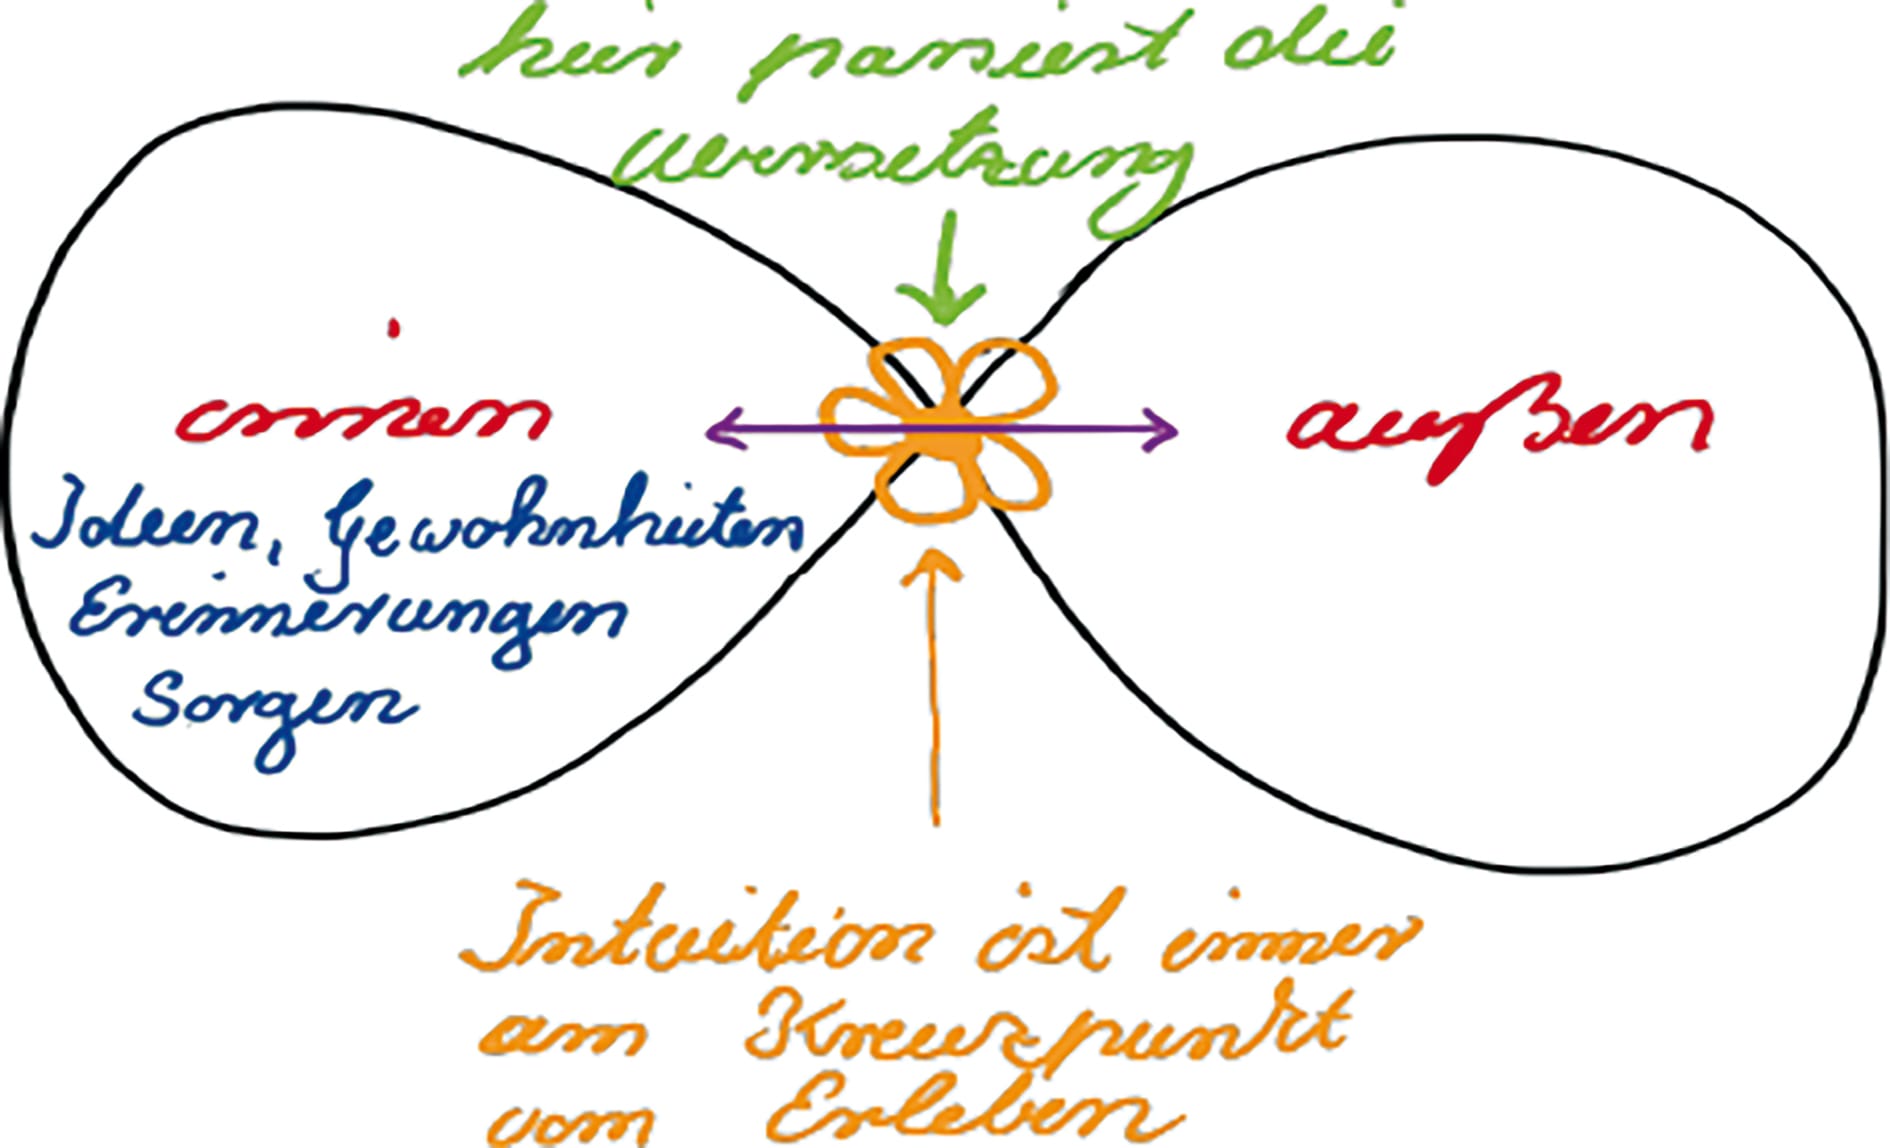 hier passiert die
Übersetzung
innen
außen
Ideen, Gewohnheiten
Erinnerungen
Sorgen
Intuition ist immer
am Kreuzpunkt
vom Erleben